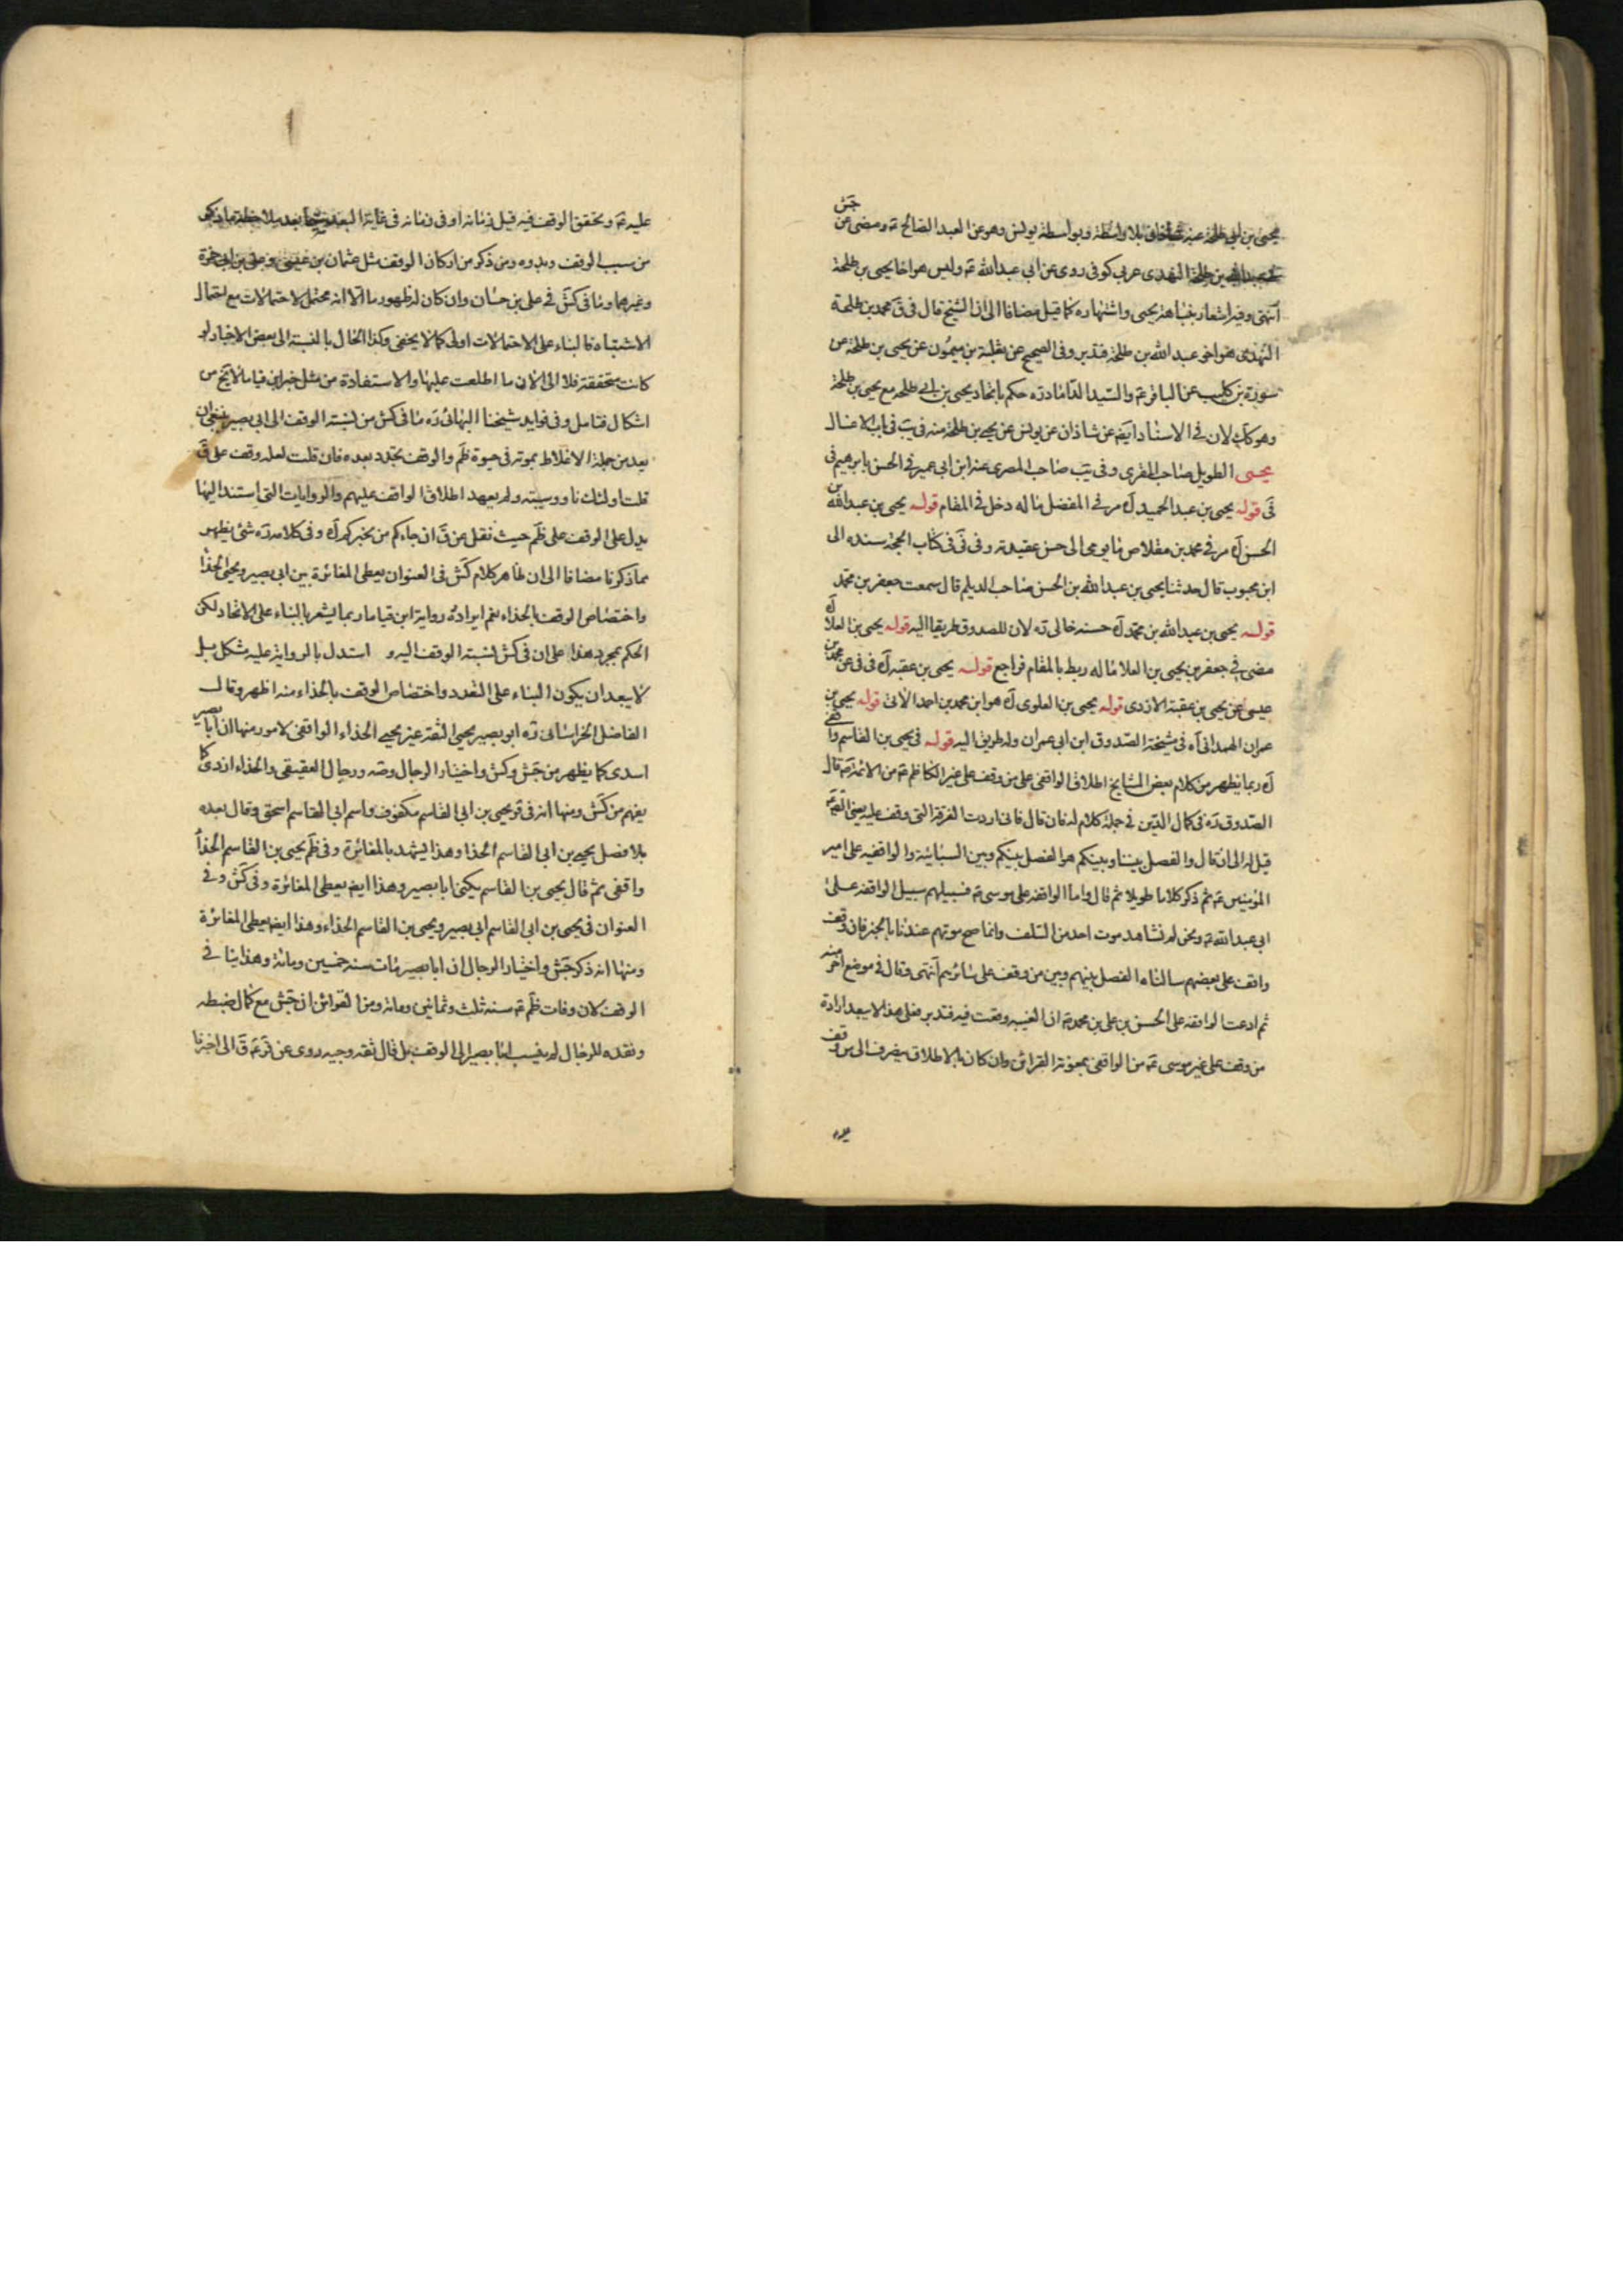 جش
يحيى بن ابى طلحة عنه بلا واسطة وبواسطة يونس وهو عن العبد الصالح ع ومضى عن
بن طلحة النهدى عربى كوفى روى عن ابى عبدالله ع وليس هو اخا يحيى بن طلحة
انتهى وفيه اشعار بنباهة يحيى واشتهاره كما قيل مضافا الى ان الشيخ قال فى ق محمد بن طلحة
النهدى هو اخو عبد الله بن طلحة فتدبر وفى الصحيح عن ثعلبة بن ميمون عن يحيى بن طلحة عن
سورة بن كليب عن الباقر ع والسيد الداماد ره حكم باتحاد يحيى بن ابى طلحه مع يحيى بن طلحة
وهو كك لان فى الاسناد ايضا عن شاذان عن يونس عن يحيى بن طلحة منه فى يب فى باب الاغسال
يحيى الطويل صاحب المقرى وفى يب صاحب المصرى عنه ابن ابى عمير فى الحسن بابرهيم فى
فى قوله يحيى بن عبد الحميد آه مر فى المفضل ما له دخل فى المقام قوله يحيى بن عبدالله بن
الحسن آه مر فى محمد بن مقلاص ما يومى الى حسن عقيدته وفى فى فى كتاب الحجة سنده الى
ابن محبوب قال حدثنا يحيى بن عبدالله بن الحسن صاحب الديلم قال سمعت جعفر بن محمد
قوله يحيى بن عبدالله بن محمد آه حسنه خالى ره لان للصدوق طريقا اليه قوله يحيى بن العلا آه
مضى فى جعفر بن يحيى بن العلا ما له ربط بالمقام فراجع قوله يحيى بن عقبة آه فى فى عن محمد بن
عيسى عن يحيى بن عقبة الازدى قوله يحيى بن العلوى آه هو ابن محمد بن احمد الاتى قوله يحيى بن
عمران الهمدانى آه فى مشيخة الصدوق ابن ابى عمران وله طريق اليه قوله فى يحيى بن القاسم واقفى
آه ربما يظهر من كلام بعض المشايخ اطلاق الواقفى على من وقف على غير الكاظم ع من الائمة ع قال
الصدوق ره فى كمال الدين فى جملة كلام له فان قال فانى اردت الفرقة التى وقف عليه يعنى
قيل له الى ان قال والفصل بيننا وبينكم هو الفصل بينكم وبين السبائية والواقفيه على امير
المؤمنين ع ثم ذكر كلاما طويلا ثم قال واما الواقفة على موسى ع فسبيلهم سبيل الواقفه على
ابى عبدالله ع ونحن لم نشاهد موت احد من السلف وانما صح موتهم عندنا بالخبر فان وقف
واقف على بعضهم سالناه الفصل بينهم وبين من وقف على سائرهم انتهى وقال فى موضع اخر منه
ثم ادعت الواقفة على الحسن بن على بن محمد ع ان الغيبه وقعت فيه فتدبر فعلى هذا لا يبعد ارادة
من وقف على غير موسى ع من الواقفى بمعونة القرائن وان كان بالاطلاق ينصرف الى من وقف
عليه
عليه ع وتحقق الوقف فيه قبل زمانه او فى زمانه فى غاية البعد سيما بعد ملاحظة ما ذكر
من سبب الوقف وبدوه ومن ذكر من اركان الوقف مثل عثمان بن عيسى وعلى بن ابى حمزة
وغيرهما وما فى كش فى على بن حسان وان كان له ظهور ما الا انه محتمل لاحتمالات مع احتمال
الاشتباه فالبناء على الاحتمالات اولى كما لا يخفى وكذا الحال بالنسبة الى بعض الاخبار لو
كانت متحققة فلا الى الان ما اطلعت عليها والاستفادة من مثل خبر ابن قياما لا يخ من
اشكال فتامل وفى فوايد شيخنا البهائى ره ما فى كش من نسبة الوقف الى ابى بصير ينبغى ان
يعد من جملة الاغلاط بموته فى حيوة ظم والوقف تجدد بعده فان قلت لعله وقف على ق
قلت اولئك ناووسية ولم يعهد اطلاق الواقف عليهم والروايات التى استند اليها
يدل على الوقف على ظم حيث نقل عن ق ان جاءكم من يخبركم آه وفى كلامه ره شئ يظهر
مما ذكرنا مضافا الى ان ظاهر كلام كش فى العنوان يعطى المغائرة بين ابى بصير ويحيى الحذاء
واختصاص الوقف بالحذاء نعم ايراده رواية ابن قياما ربما يشعر بالبناء على الاتحاد لكن
الحكم بمجرد هذا على ان فى كش نسبة الوقف اليه و استدل بالرواية عليه مشكل بل
لا يبعد ان يكون البناء على التعدد واختصاص الوقف بالحذاء منه اظهر وقال
الفاضل الخراسانى ره ابو بصير يحيى الثقة غير يحيى الحذاء الواقفى لامور منها ان ابا بصير
اسدى كما يظهر من جش وكش واختيار الرجال وصه ورجال العقيقى والحذاء ازدى كما
يفهم من كش ومنها انه فى قر يحيى بن ابى القاسم مكفوف واسم ابى القاسم اسحق وقال بعده
بلا فصل يحيى بن ابى القاسم الحذا وهذا يشهد بالمغائرة وفى ظم يحيى بن القاسم الحذاء
واقفى ثم قال يحيى بن القاسم يكنى ابا بصير وهذا ايضا يعطى المغائرة وفى كش وفى
العنوان فى يحيى بن ابى القاسم ابى بصير ويحيى بن القاسم الحذاء وهذا ايضا يعطى المغائرة
ومنها انه ذكر جش واختيار الرجال ان ابا بصير مات سنه خمسين ومائة وهذا ينافى
الوقف لان وفات ظم ع سنه ثلث وثمانين ومائة ومن القرائن ان جش مع كمال ضبطه
ونقده للرجال لم ينسب ابا بصير الى الوقف بل قال ثقه وجيه روى عن قر ع ق الى اخر ما